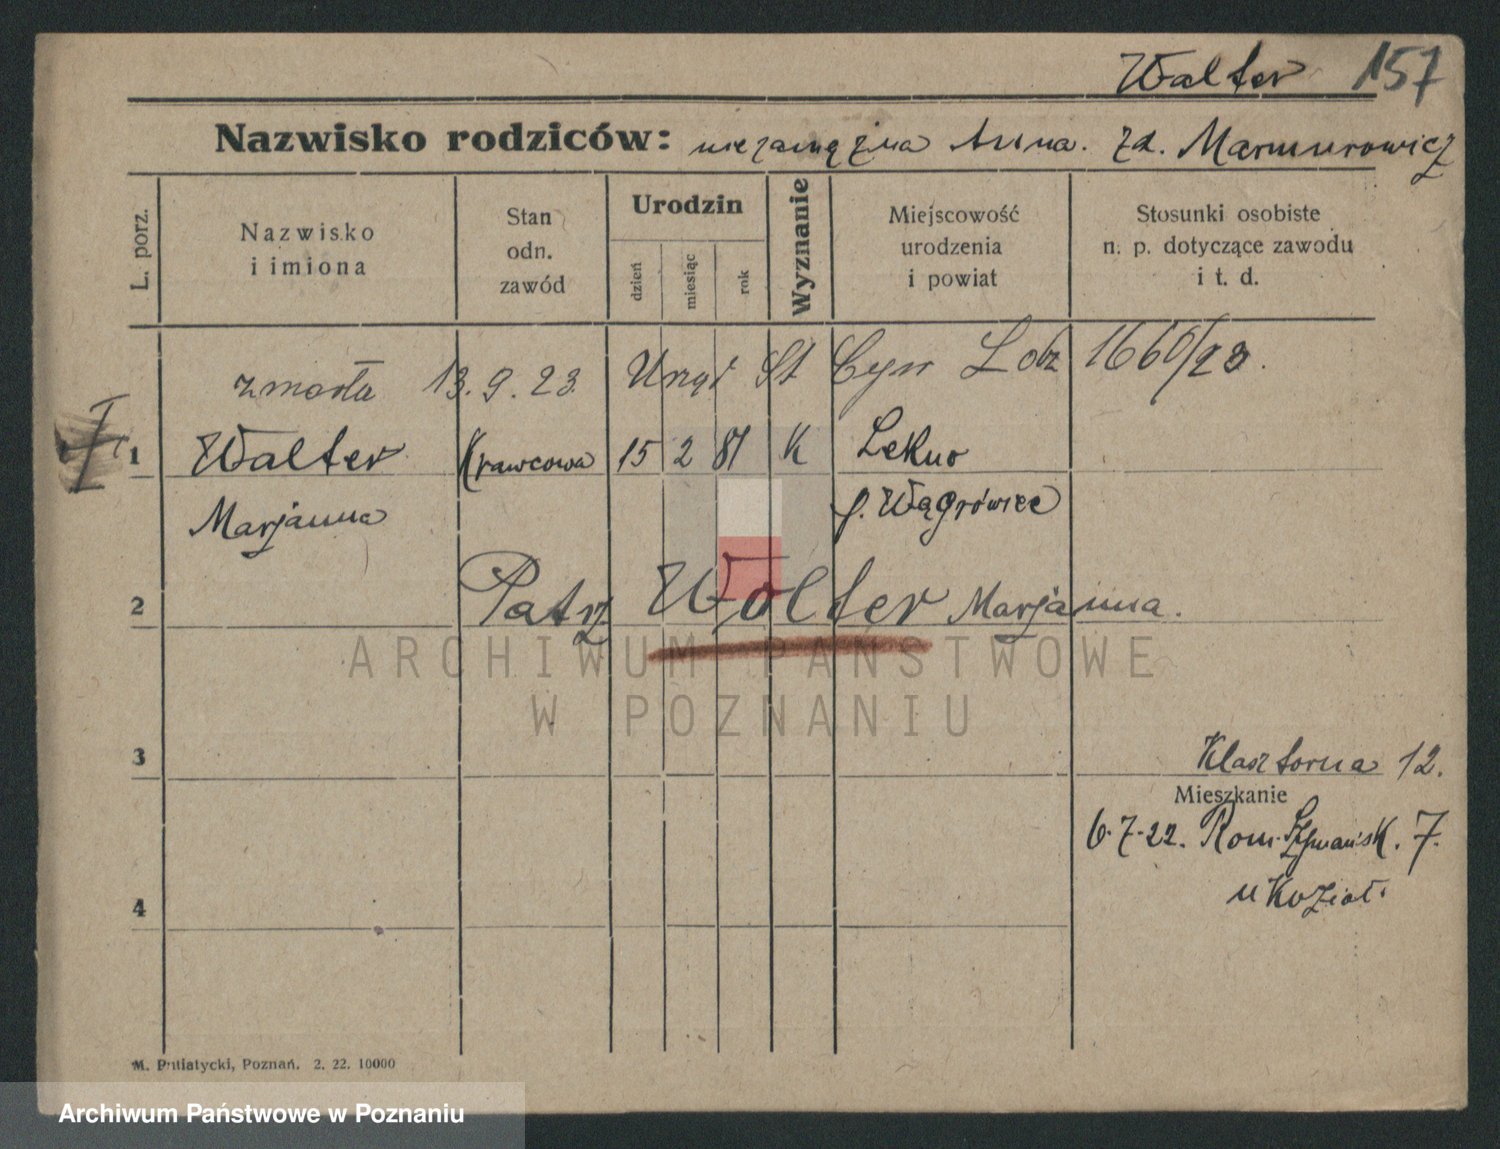 Walter 157
Nazwisko rodziców: niezamężna Anna. zd. Marmurowicz
L. porz.
Nazwisko i imiona
Stan odn. zawód
Urodzin
dzień
miesiąc
rok
Wyznanie
Miejscowość urodzenia i powiat
Stosunki osobiste n. p. dotyczące zawodu i t. d.
zmarła 13.9.23. Urząd St Cyw 1660/23.
I
1 Walter Krawcowa 15 2 81 K Lekno
Marjanna p. Wągrówiec
2 Patrz Wolter Marjanna.
ARCHIWUM PAŃSTWOWE
W POZNANIU
3 Klasztorna 12.
Mieszkanie
6.7.22. Rom. Szymańsk. 7.
u Kozioł.
4
M. Putiatycki, Poznań. 2. 22. 10000
Archiwum Państwowe w Poznaniu